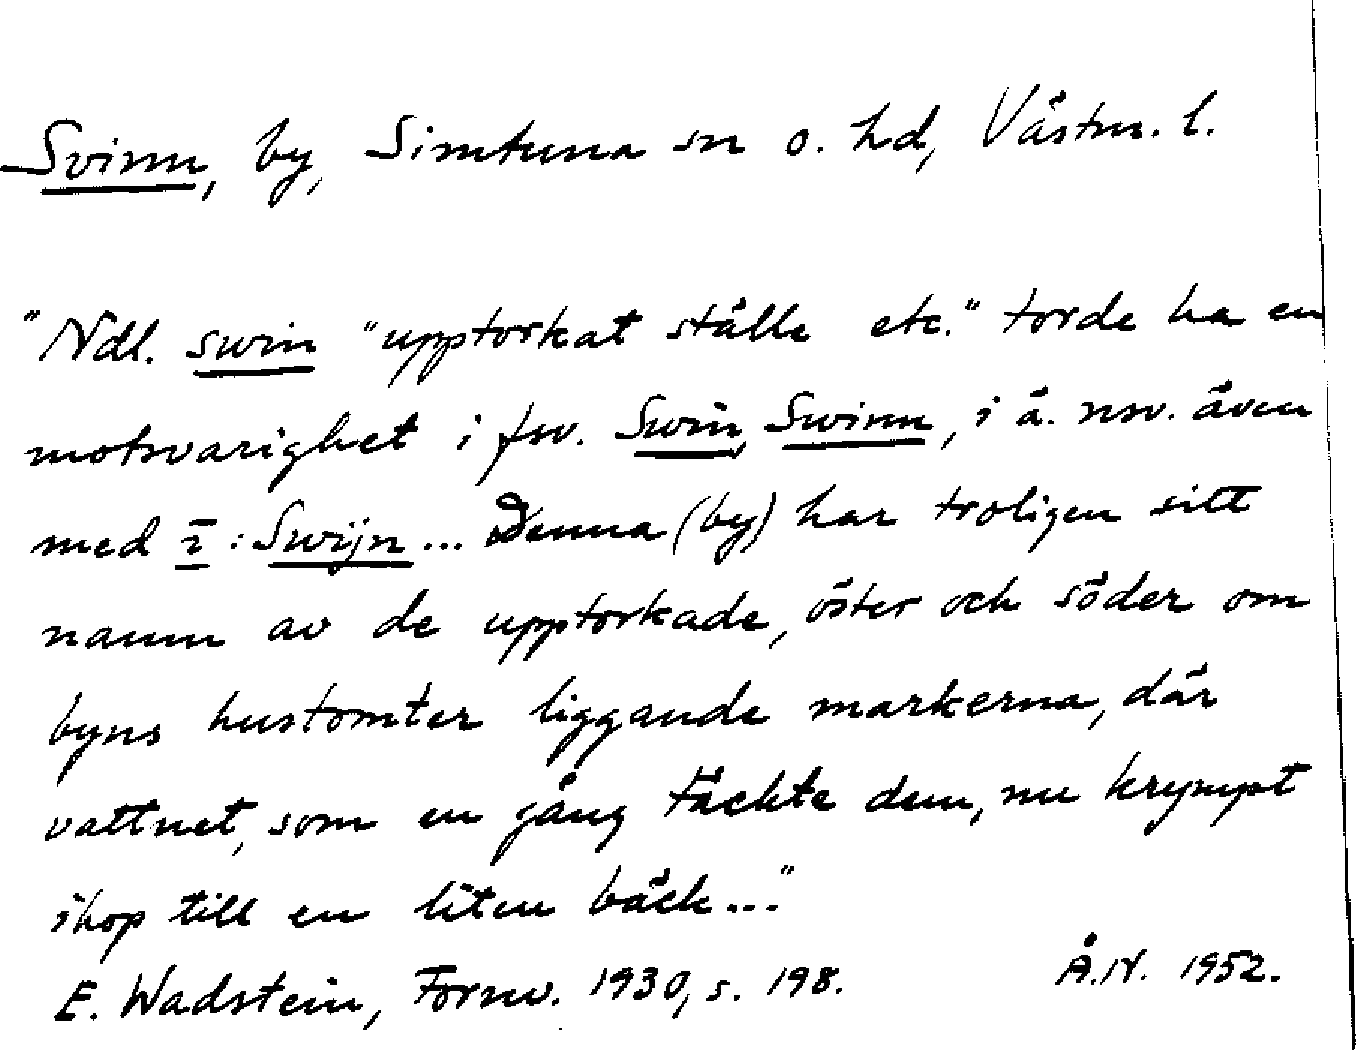 Svinn, by, Simtuna sn o. hd, Västm. l.
"Ndl. swin "upptorkat ställe etc." torde ha en
motsvarighet i fsv. Swin, Swinn, i ä. nsv. även
med ī: Swijn... Denna (by) har troligen sitt
namn av de upptorkade, öster och söder om
byns hustomter liggande markerna, där
vattnet, som en gång täckte dem, nu krympt
ihop till en liten bäck..."
E. Wadstein, Fornv. 1930, s. 198. Å.N. 1952.